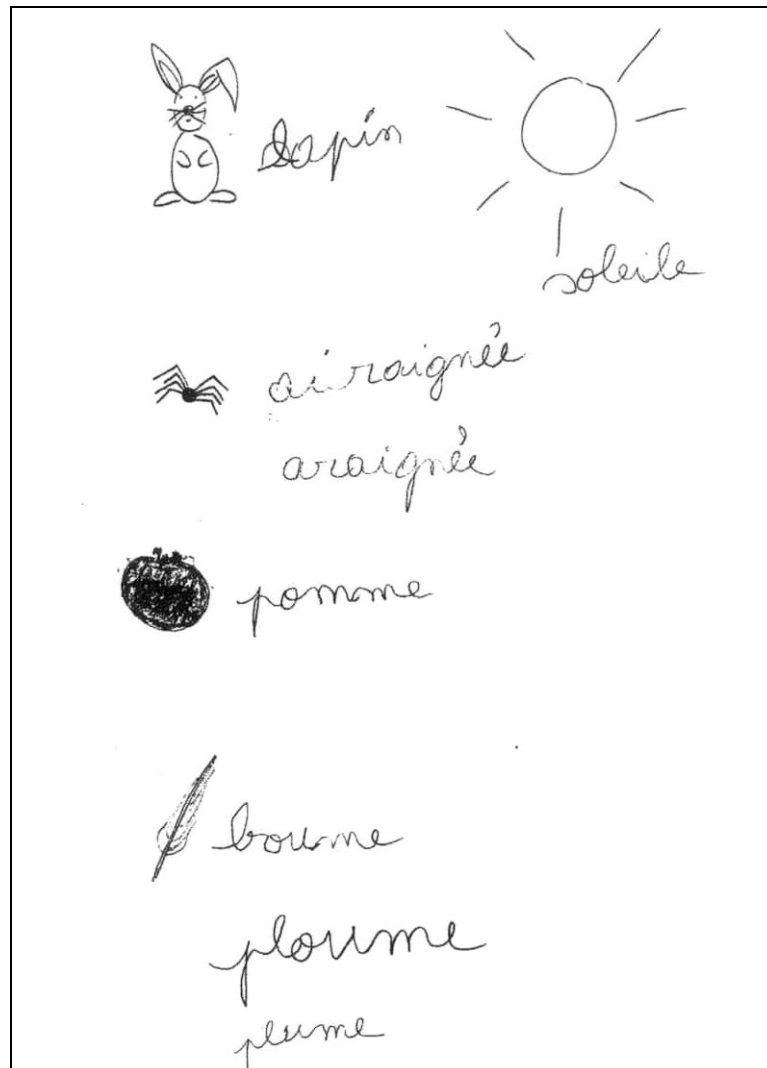 lapin
soleile
airaignée
araignée
pomme
boume
ploume
plume